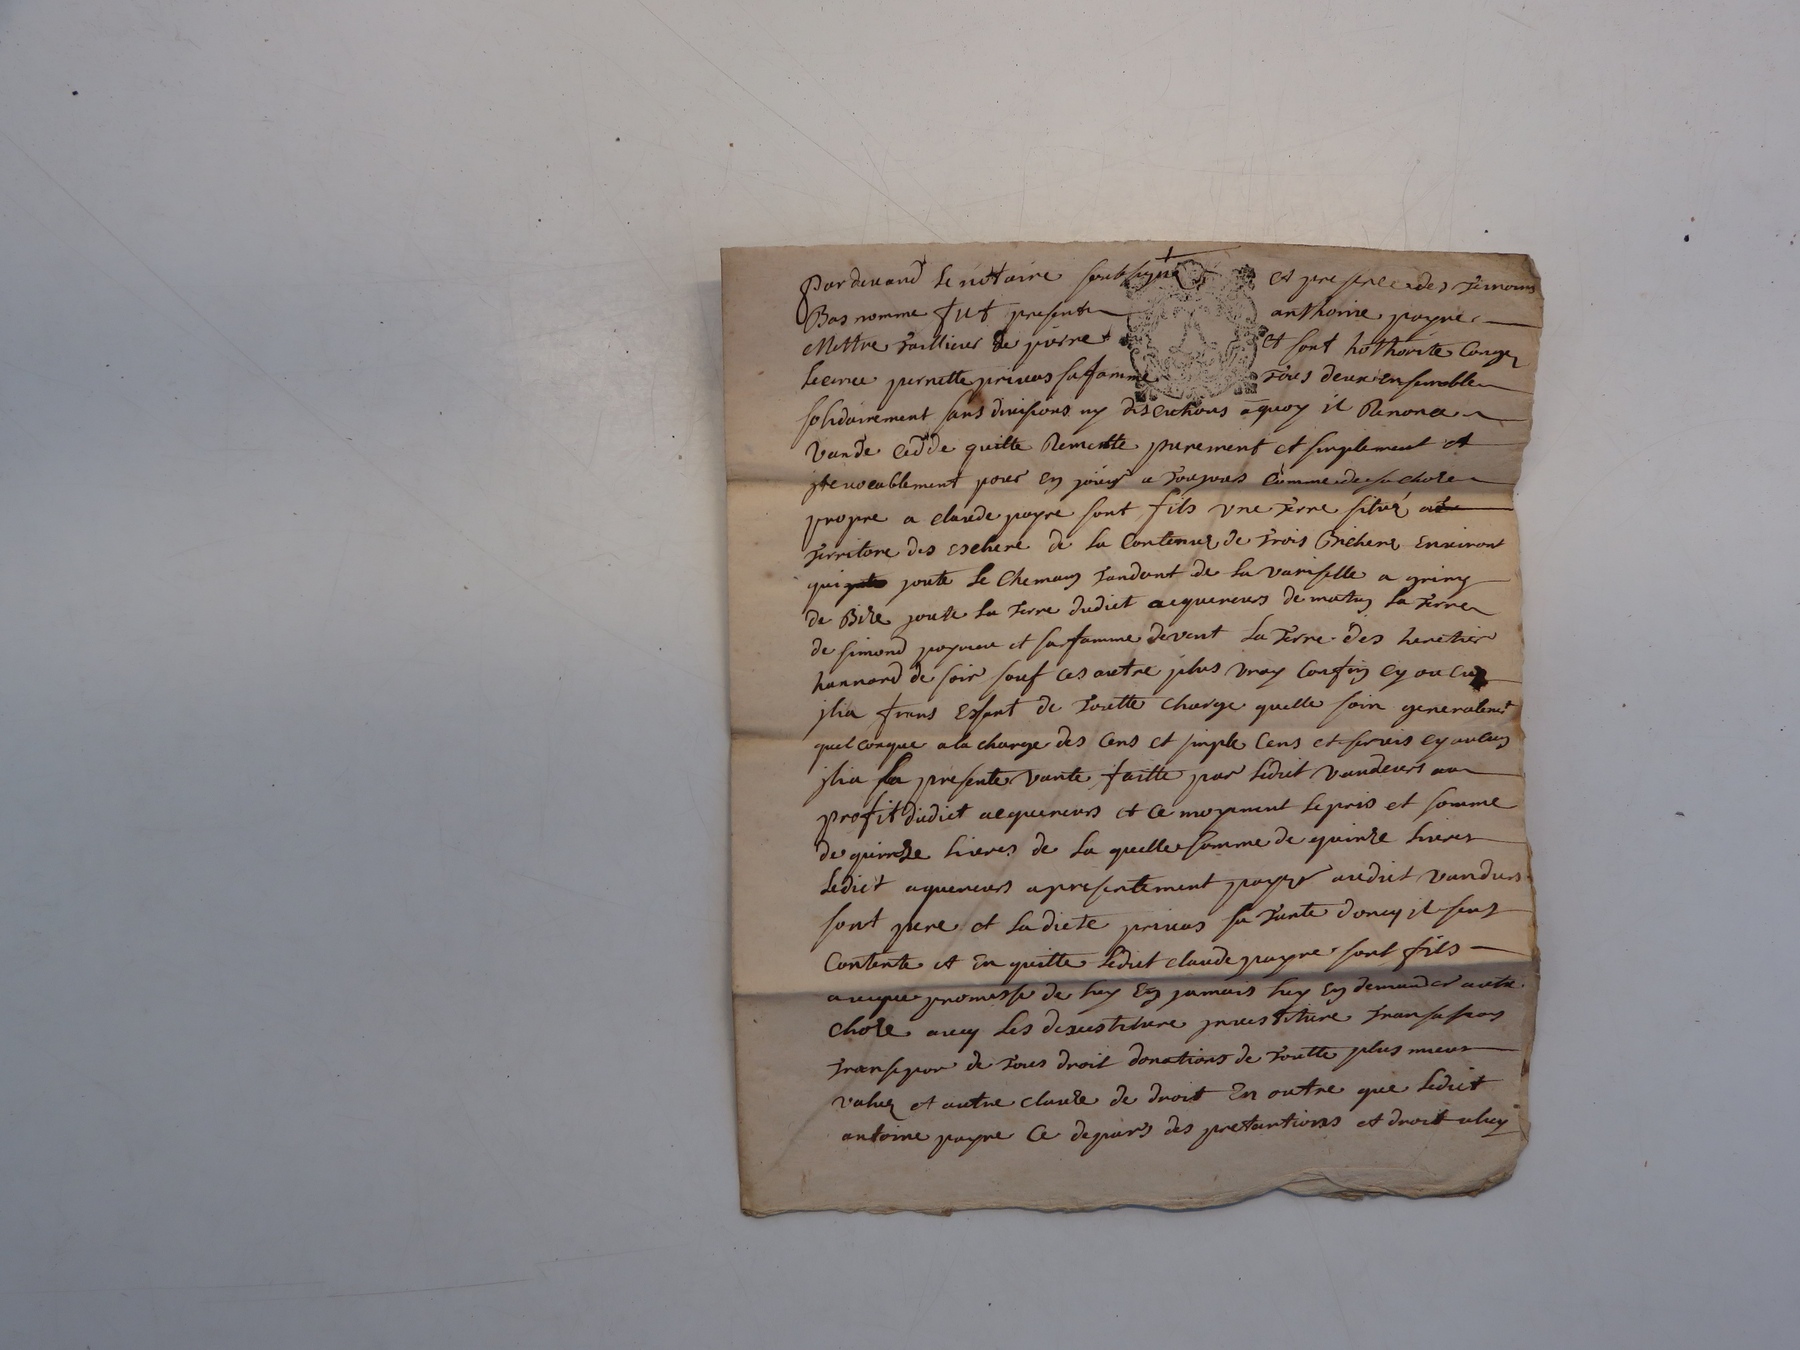 Pardevand le nottaire soubsigné et presence des temoins
Bas nomme fut present anthoine payre
Mettre taillieur de pierre et sont hothorite Conge
licence pernette privas sa famme tous deux ensemble
solidairement sans divisions ny discutions a quoy il Renonce
Vande cedde quitte Remette purement et simplement et
jrevocablement pour en jouir a toujours Comme de sa choze
propre a claude payre sont fils vne terre situé
territore des eschere de la Contenue de trois Bichere environt
qui joute le Chemain tandant de la variselle a
de Bize joute la terre dudict acquereurs de matin la terre
de simond et sa famme de vent la terre des heretier
hannard de soir sauf ces autre plus vray Confin cy aucung
jlia frans Exsant de toutte charge quelle soin generalement
quelconque a la charge des Cens et simple Cens et servis cy aucung
jlia la presente vante faitte par ledict vandeurs au
profit dudict acquereurs et ce moyenent le pris et somme
de quinze livres de la quelle somme de quinze livres
ledict aquereurs a presentement payer audict vandurs
sont pere et la dicte privas sa tante doncy il sens
Contente et En quitte ledict claude payre sont fils
avecque promesse de luy En jamais luy En demander autre
choze avecq les desvestiture jnvestiture transassions
transpor de tous droit donations de toutte plus mieux
value et autre clauze de droit En outre que ledict
antoine payre Ce depars des pretantions et droit a luy